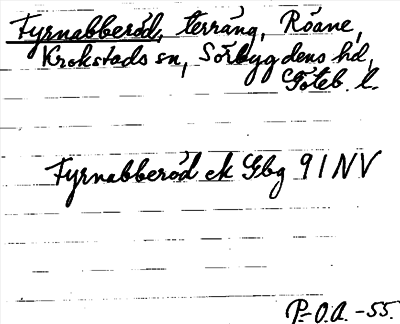 Fyrnabberöd, terräng, Röane,
Krokstads sn, Sörbygdens hd,
Göteb. l.
Fyrnabberöd ek Gbg 91 NV
P-O.A. -55.